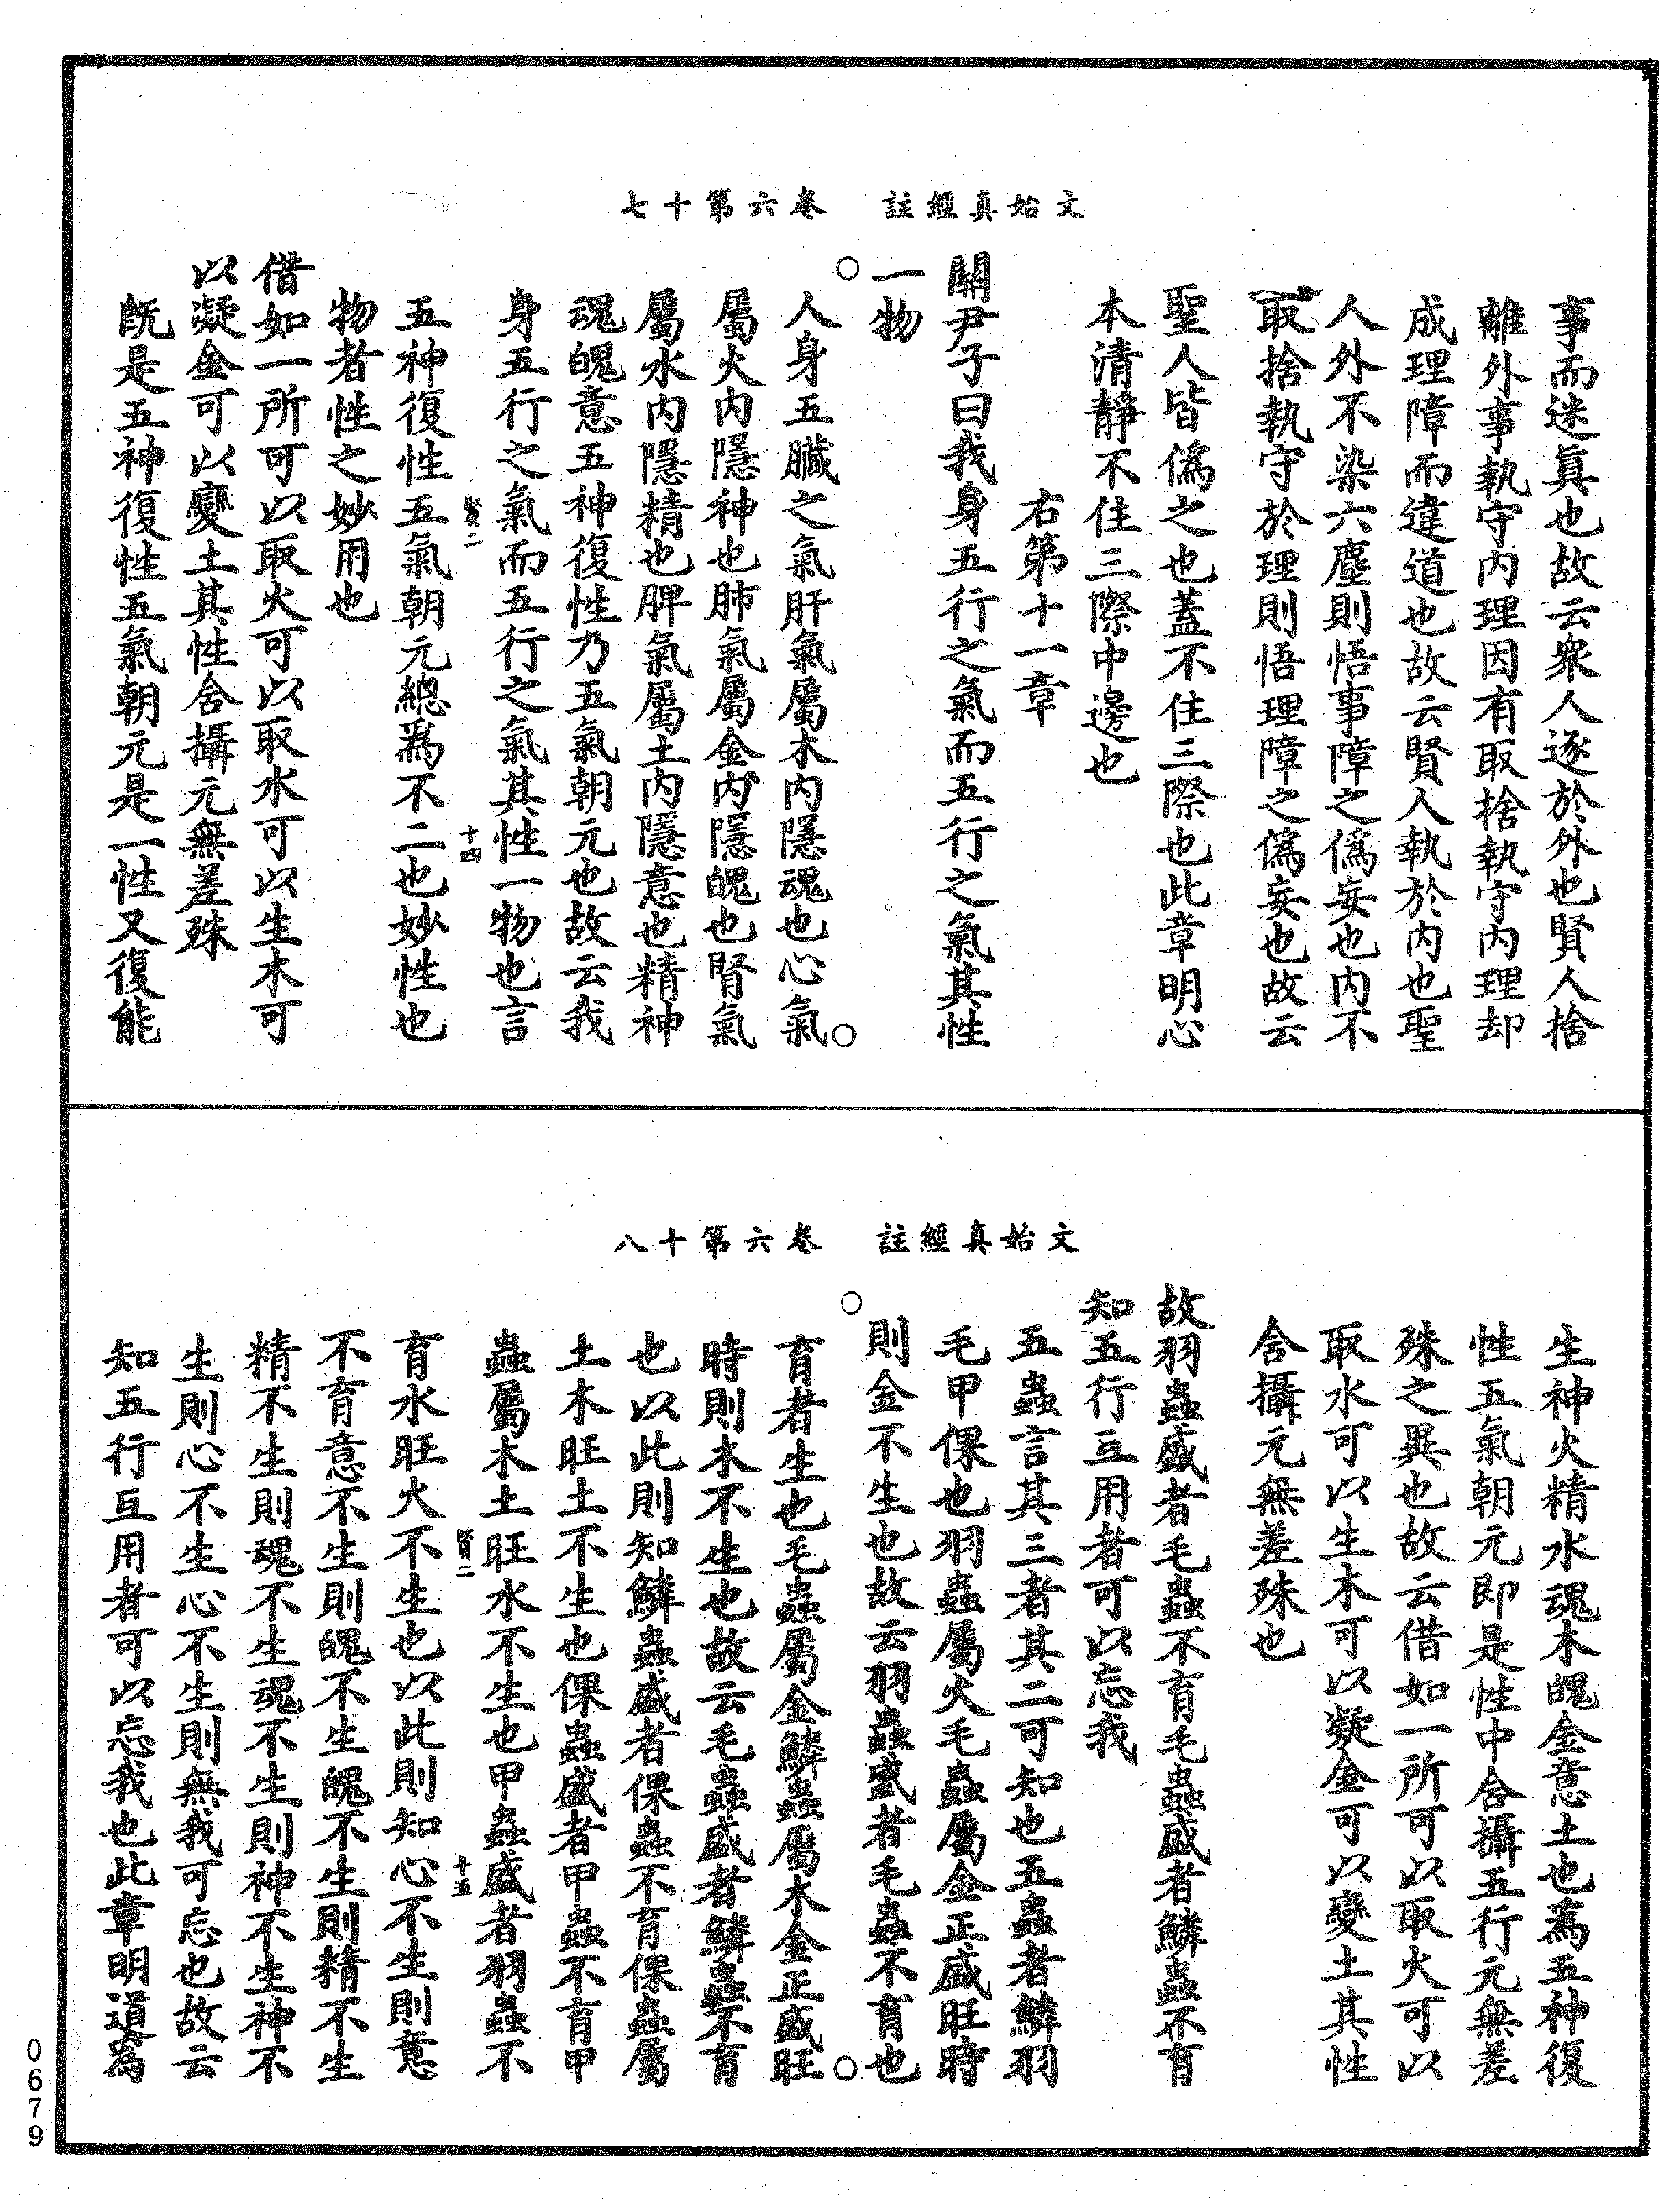 文始真經註　卷六第十七
事而迷真也故云衆人逐於外也賢人捨
離外事執守內理因有取捨執守內理却
成理障而違道也故云賢人執於內也聖
人外不染六塵則悟事障之僞妄也內不
取捨執守於理則悟理障之僞妄也故云
聖人皆僞之也蓋不住三際也此章明心
本清靜不住三際中邊也
右第十一章
關尹子曰我身五行之氣而五行之氣其性
一物
人身五臟之氣肝氣屬木內隱魂也心氣
屬火內隱神也肺氣屬金內隱魄也腎氣
屬水內隱精也脾氣屬土內隱意也精神
魂魄意五神復性乃五氣朝元也故云我
身五行之氣而五行之氣其性一物也言
賢二　十四
五神復性五氣朝元總爲不二也妙性也
物者性之妙用也
借如一所可以取火可以取水可以生木可
以凝金可以變土其性含攝元無差殊
既是五神復性五氣朝元是一性又復能
文始真經註　卷六第十八
生神火精水魂木魄金意土也爲五神復
性五氣朝元即是性中含攝五行元無差
殊之異也故云借如一所可以取火可以
取水可以生木可以凝金可以變土其性
含攝元無差殊也
故羽蟲盛者毛蟲不育毛蟲盛者鱗蟲不育
知五行互用者可以忘我
五蟲言其三者其二可知也五蟲者鱗羽
毛甲倮也羽蟲屬火毛蟲屬金正盛旺時
則金不生也故云羽蟲盛者毛蟲不育也
育者生也毛蟲屬金鱗蟲屬木金正盛旺
時則木不生也故云毛蟲盛者鱗蟲不育
也以此則知鱗蟲盛者倮蟲不育倮蟲屬
土木旺土不生也倮蟲盛者甲蟲不育甲
蟲屬木土旺水不生也甲蟲盛者羽蟲不
賢二　十五
育水旺火不生也以此則知心不生則意
不育意不生則魄不生魄不生則精不生
精不生則魂不生魂不生則神不生神不
生則心不生心不生則無我可忘也故云
知五行互用者可以忘我也此章明道爲
0679